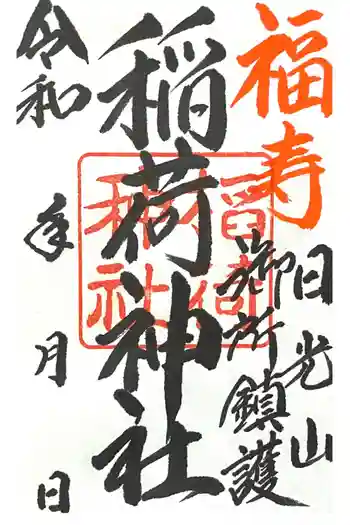 福寿
日光山
御旅所鎮護
稲荷神社
稲荷神社
令和 年 月 日